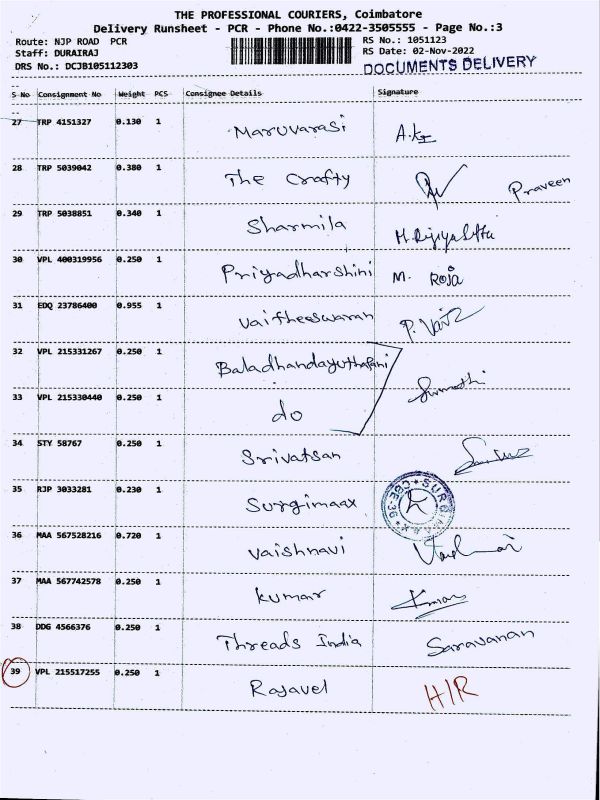 THE PROFESSIONAL COURIERS, Coimbatore
Delivery Runsheet - PCR - Phone No.:0422-3505555 - Page No.:3
Route: NJP ROAD PCR RS No.: 1051123
Staff: DURAIRAJ RS Date: 02-Nov-2022
DRS No.: DCJB105112303 DOCUMENTS DELIVERY
S No Consignment No Weight PCS Consignee Details Signature
27 TRP 4151327 0.130 1 Maruvarasi
28 TRP 5039042 0.380 1 The Crafty Praveen
29 TRP 5038851 0.340 1 Sharmila
30 VPL 400319956 0.250 1 Priyadharshini M. Roja
31 EDQ 23786400 0.955 1 Vaitheeswaran
32 VPL 215331267 0.250 1 Baladhandayuthapani
33 VPL 215330440 0.250 1 do Sumathi
34 STY 58767 0.250 1 Srivatsan
35 RJP 3033281 0.230 1 Surgimaax
36 MAA 567528216 0.720 1 Vaishnavi
37 MAA 567742578 0.250 1 Kumar Kumar
38 DDG 4566376 0.250 1 Threads India Saravanan
39 VPL 215517255 0.250 1 Rajavel H/R